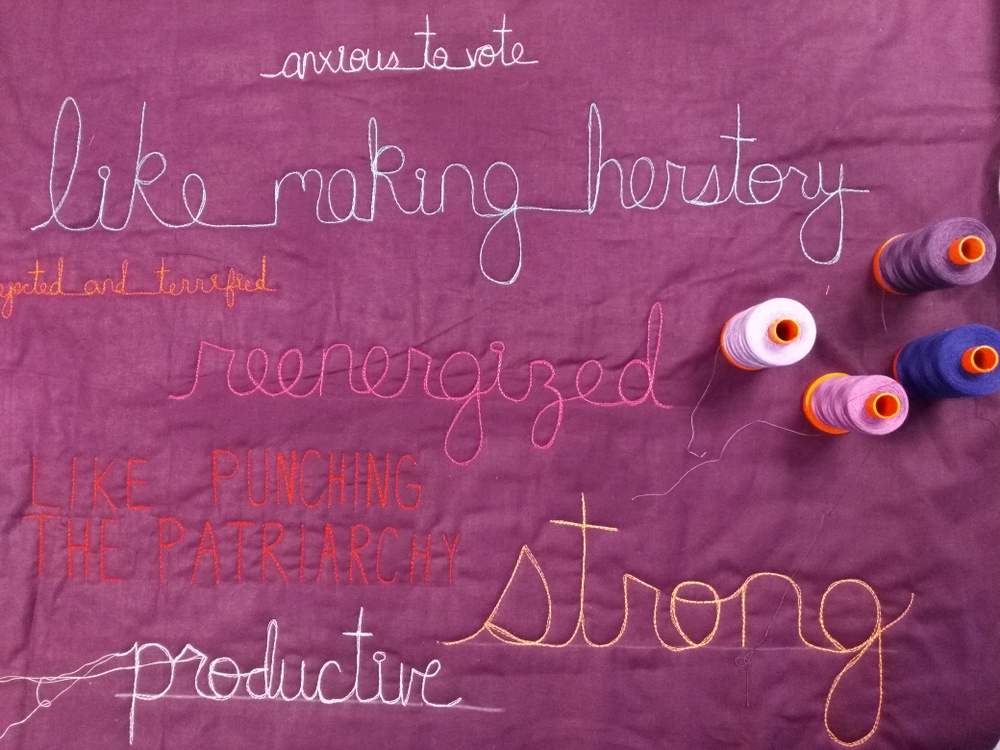 anxious to vote
like making herstory
ejected and terrified
reenergized
LIKE PUNCHING
THE PATRIARCHY
strong
productive